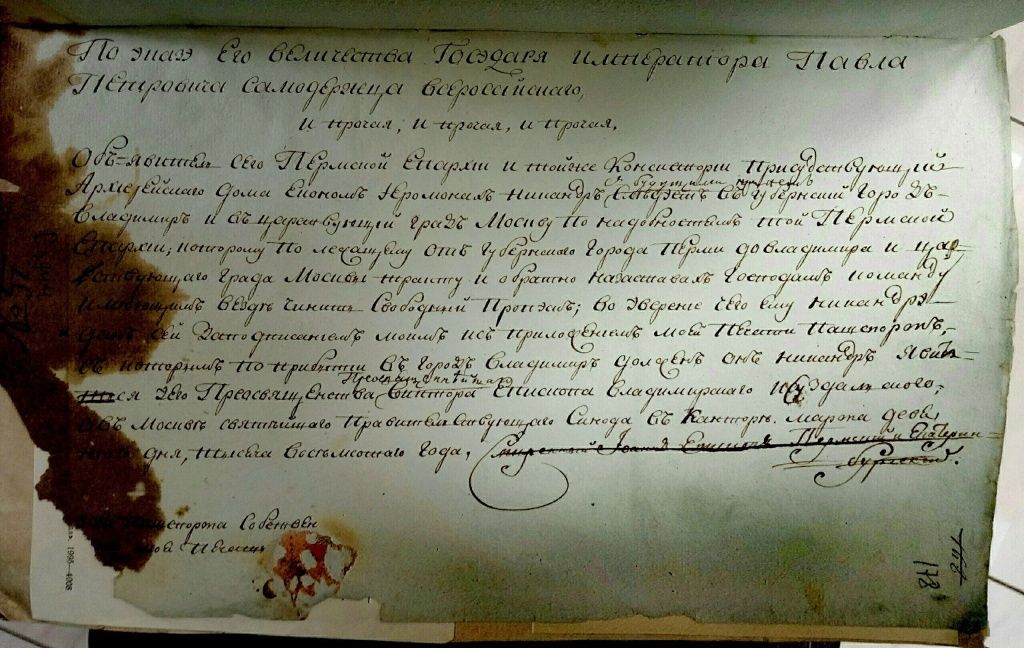 По указу Его величества Государя императора Павла
Петровича самодержца всероссийскаго,
и прочая, и прочая, и прочая,
Объявитель сего Пермской Епархии и тойже Консистории Присудствующий
Архиерейскаго дома Економъ Иеромонахъ Никандръ
съ будущими
въ Губернский Городъ
Владимиръ и въ царствующий градъ Москву по надобностямъ той Пермской
Епархии, которому по лежащему отъ Губернскаго Города Перми до Владимира и цар
ствующаго града Москвы тракту и обратно на заставахъ Господамъ команду
имеющимъ везде чинить Свободный Пропускъ; во уверение чего ему Никандру
данъ сей за подписаниемъ моимъ и съ приложениемъ моей печати Пашпортъ,
съ которымъ по прибытии въ Городъ Владимиръ долженъ онъ Никандръ явить
ся Его Преосвященства
Епископа Владимирскаго и Суздальскаго,
а въ Москве святейшаго Правительствующаго Синода въ Канторе. марта девят
дня, тысяча восьмсотаго года,
Смиренный Иоаннъ Епископъ Пермский и Екатерин
бургский.
Пашпорта Собствен
печать
178